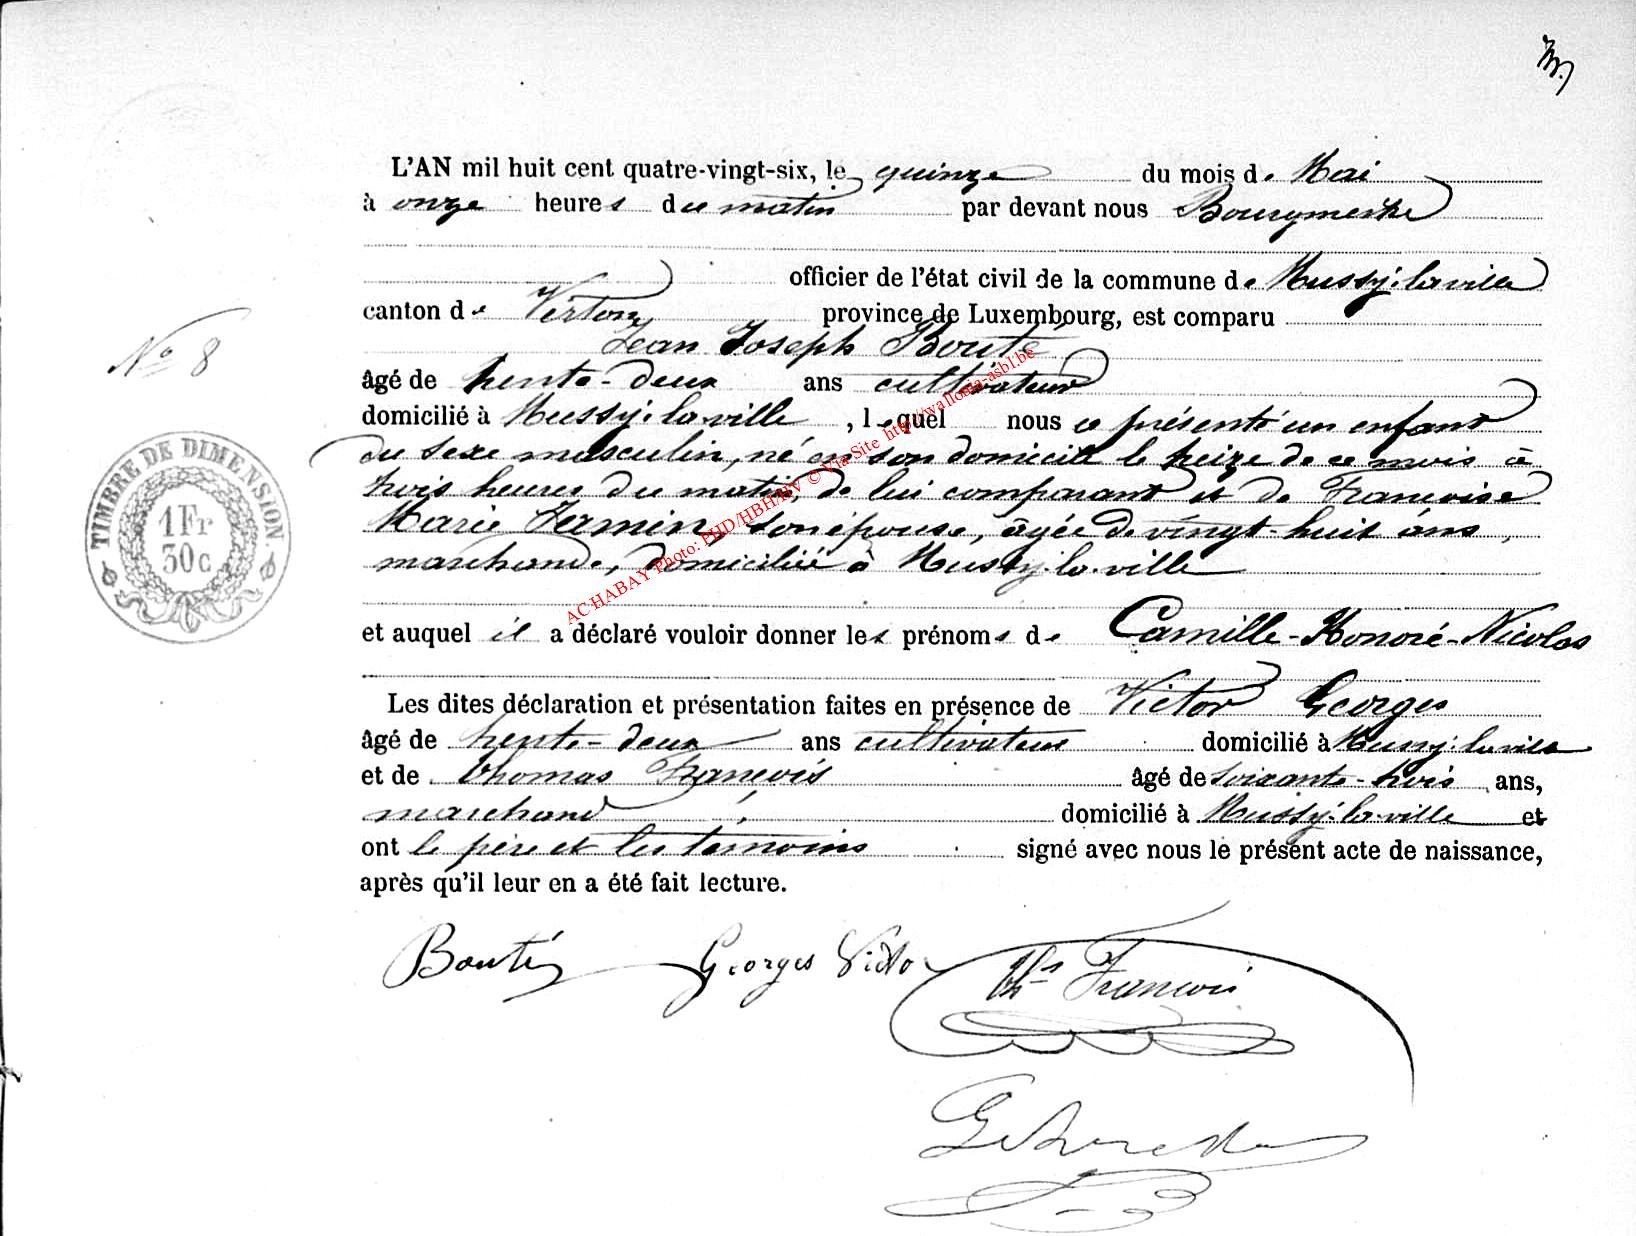 L'AN mil huit cent quatre-vingt-six, le quinze du mois de Mai
à onze heures du matin par devant nous Bourgmestre
officier de l'état civil de la commune de Mussy-la-ville
canton de Virton province de Luxembourg, est comparu
Jean Joseph Bouté
âgé de trente-deux ans cultivateur
domicilié à Mussy-la-ville, lequel nous a présenté un enfant
du sexe masculin, né en son domicile le treize de ce mois à
trois heures du matin, de lui comparant et de Françoise
Marie Firmin, son épouse, âgée de vingt-huit ans,
marchande, domiciliée à Mussy-la-ville
et auquel il a déclaré vouloir donner les prénoms de Camille-Honoré-Nicolas
Les dites déclaration et présentation faites en présence de Victor Georges
âgé de trente-deux ans cultivateur domicilié à Mussy-la-ville
et de Thomas François âgé de soixante-trois ans,
marchand domicilié à Mussy-la-ville et
ont le père et les témoins signé avec nous le présent acte de naissance,
après qu'il leur en a été fait lecture.
Bouté Georges Victor Ths François
No 8
TIMBRE DE DIMENSION
1 Fr
30 c
AC HABAY Photo: PHD/HBH/HV © Via Site http://wallonia-asbl.be